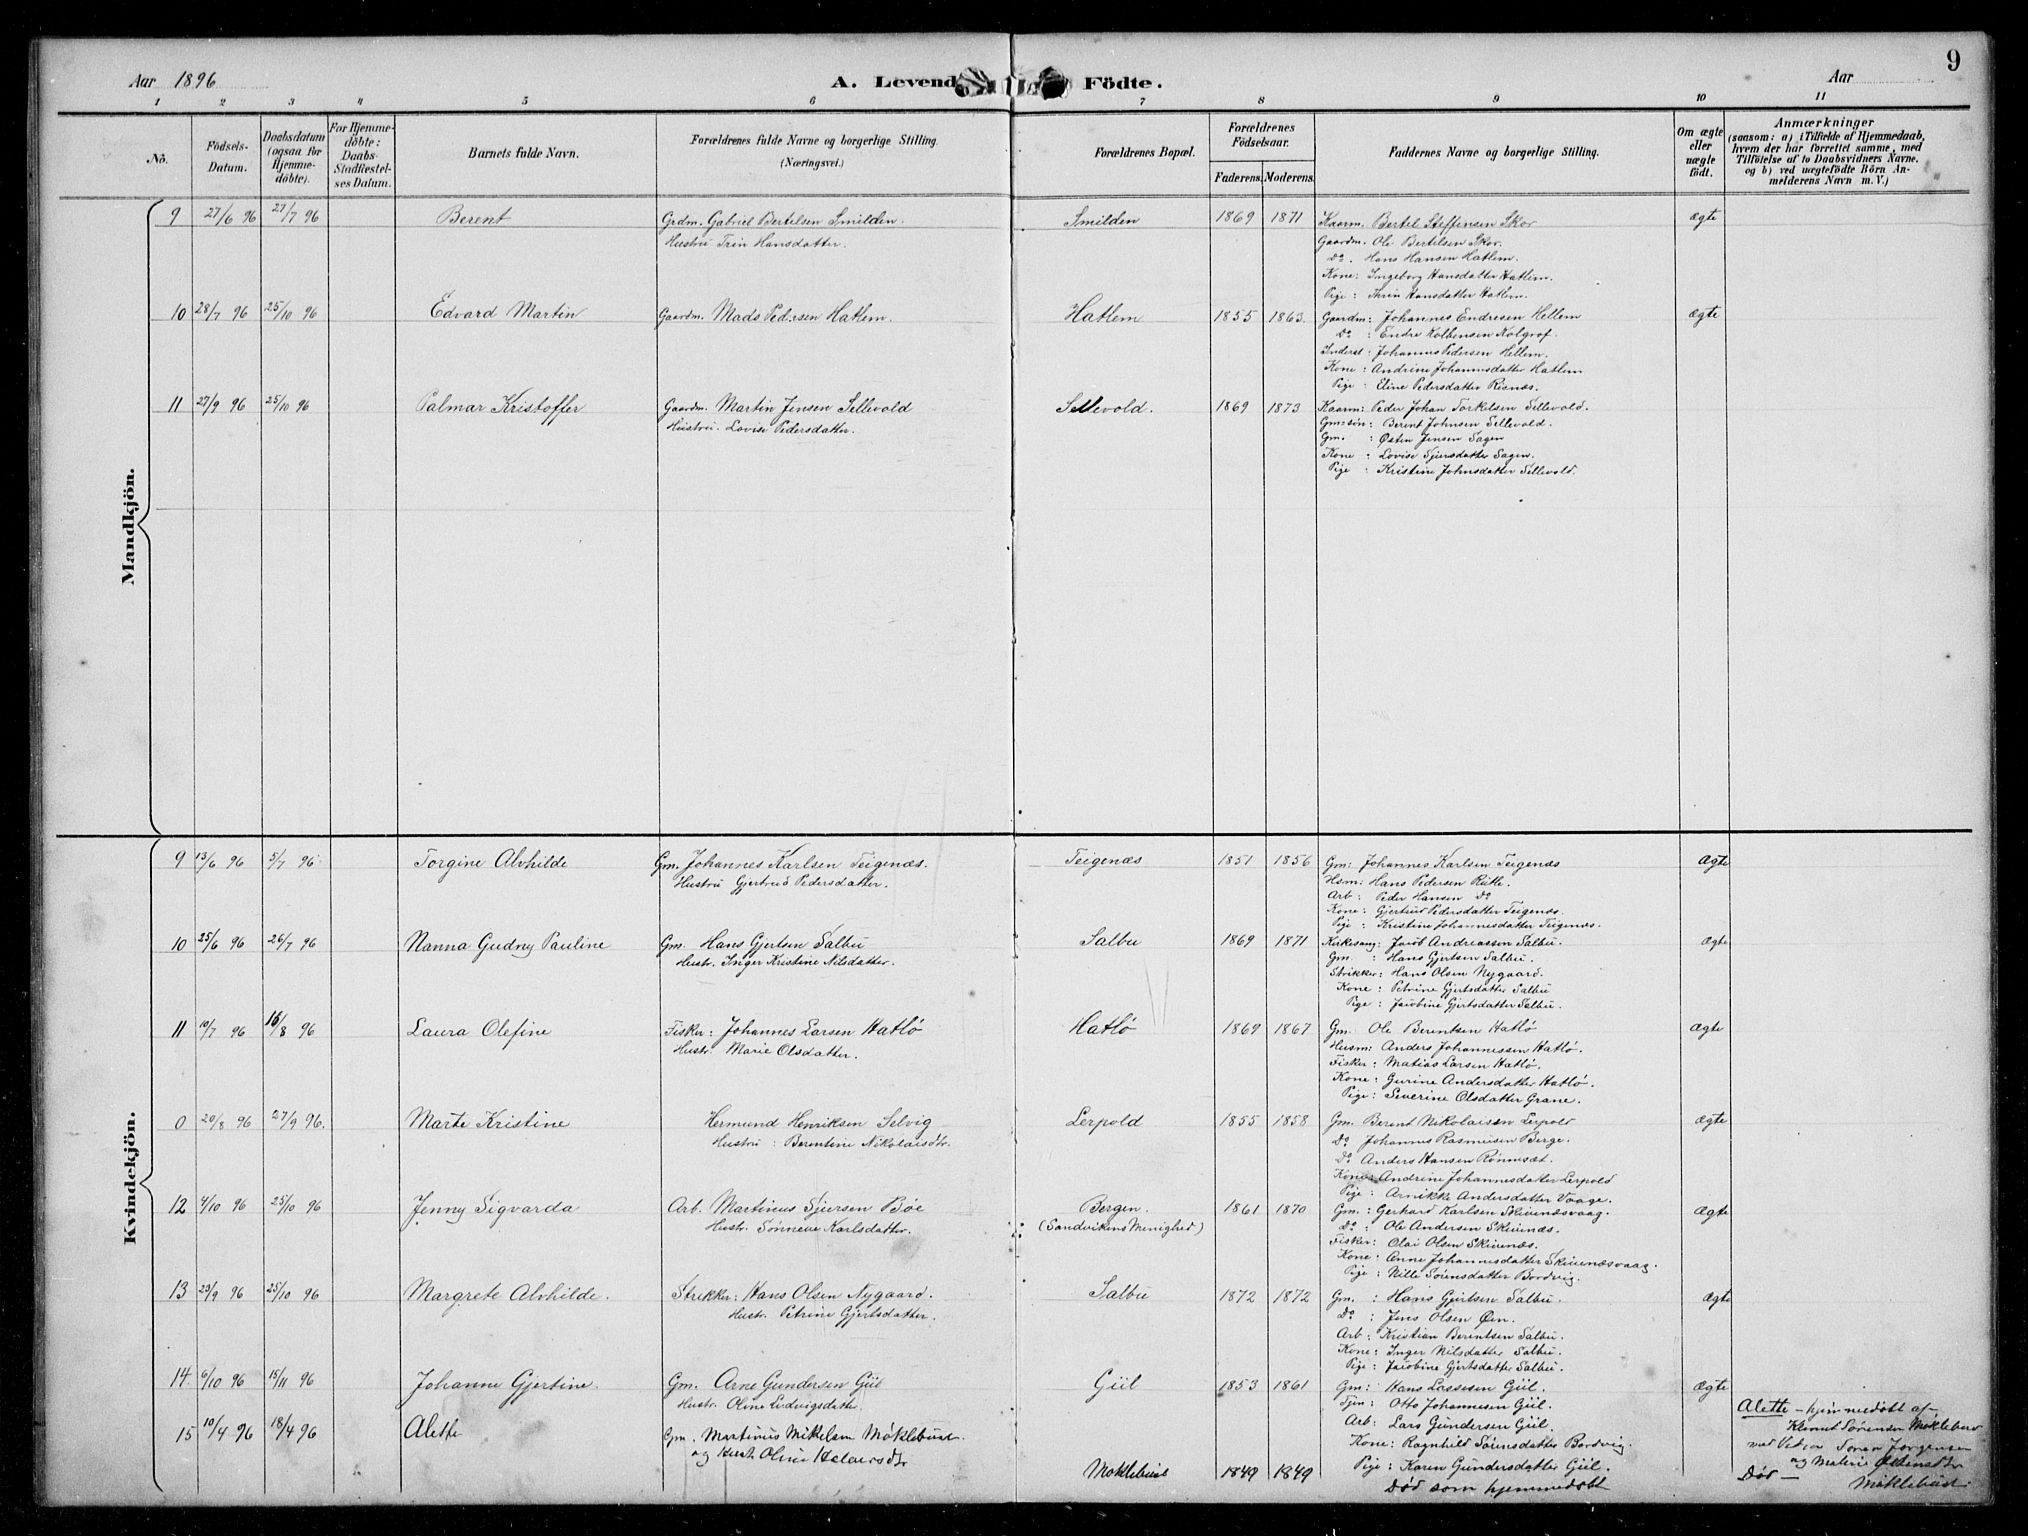 9
Aar 1896
A. Levende Födte.
Aar
1 2 3 4 5 6 7 8 9 10 11
No.
Födsels-
Datum.
Daabsdatum
(ogsaa for
Hjemme-
döbte).
For Hjemme-
döbte:
Daabs-
Stadfæstel-
ses Datum.
Barnets fulde Navn.
Forældrenes fulde Navne og borgerlige Stilling.
(Næringsvei.)
Forældrenes Bopæl.
Forældrenes
Födselsaar.
Faderens. Moderens.
Faddernes Navne og borgerlige Stilling.
Om ægte
eller
uægte
födt.
Anmærkninger
(saasom: a) i Tilfælde af Hjemmedaab,
hvem der har forrettet samme, med
Tilföielse af to Daabsvidners Navne.
og b) ved uægtefödte Börn An-
melderens Navn m. V.)
Mandkjön.
9 27/6 96 27/7 96 Berent Grdm. Gabriel Bertelsen Smilden. Smilden 1869 1871 Kaarm. Bertel Steffensen Skor ægte
Hustru Trin Hansdatter. Gaardm. Ole Bertelsen Skor.
Do. Hans Hansen Hatlem.
Kone: Ingeborg Hansdatter Hatlem.
Pige: Thrin Hansdatter Hatlem.
10 28/7 96 25/10 96 Edvard Martin Gaardm. Mads Pedersen Hatlem. Hatlem 1855 1863. Gaardm: Johannes Endresen Hellem ægte
Do: Endre Kolbensen Kolgrof.
Inderst: Johannes Pedersen Hellem.
Kone: Andrine Johannesdatter Hatlem
Pige: Eline Pedersdatter Risnæs.
11 27/9 96 25/10 96 Palmar Kristoffer Gaardm. Martin Jensen Sellevold Sellevold. 1869 1873 Kaarm: Peder Johan Torkelsen Sellevold.
Hustru. Lovise Pedersdatter. Gm:søn: Berent Johnsen Sellevold.
Gm. : Østen Jensen Sagen
Kone: Lovise Sjursdatter Sagen.
Pige: Kristine Johnsdatter Sellevold.
Kvindekjön.
9 13/6 96 5/7 96 Torgine Alvhilde Gm. Johannes Karlsen Teigenæs. Teigenæs 1851 1856 Gm: Johannes Karlsen Teigenæs Ægte
Hustru Gjertrud Pedersdatter. Hsm: Hans Pedersen Rutle.
Arb: Peder Hansen Do
Kone: Gjertrud Pedersdatter Teigenæs.
Pige: Kristine Johannesdatter Teigenæs.
10 25/6 96 26/7 96 Nanna Gudny Pauline Gm. Hans Gjertsen Salbu Salbu 1869 1871 Kirkesang: Jacob Andreassen Salbu. ægte
Hustr. Inger Kristine Nilsdatter. Gm. : Hans Gjertsen Salbu.
Strikker: Hans Olsen Nygaard.
Kone: Petrine Gjertsdatter Salbu
Pige: Jacobine Gjertsdatter Salbu.
11 10/7 96 16/8 96 Laura Olefine Fisker: Johannes Larsen Hatlø Hatlø 1869 1867 Gm. Ole Berentsen Hatlø ægte
Hustr. Marie Olsdatter. Husm: Anders Johannessen Hatlø.
Fisker: Matias Larsen Hatlø.
Kone: Gurine Andersdatter Hatlø.
Pige: Severine Olsdatter Grane.
0 20/8 96 27/9 96. Marte Kristine Hermund Henriksen Selvig Lerpold 1855 1858 Gm. Berent Nikolaisen Lerpold ægte
Hustru: Berentine Nikolaisdtr. Do Johannes Rasmusen Berge.
Do Anders Hansen Rønneset.
Kone: Andrine Johannesdatter Lerpold
Pige: Arnikke Andersdatter Vaage.
12 4/10 96 25/10 96 Jenny Sigvarda Arb. Martinus Sjursen Bøe Bergen. 1861 1870 Gm. : Gerhard Karlsen Skivenæsvaag. ægte
Hustr. Sønneve Karlsdatter. (Sandvikens Menighed) Do: Ole Andersen Skivenæs.
Fisker: Olai Olsen Skivenæs.
Kone: Anne Johannesdatter Skivenæsvaag.
Pige: Nille Sørensdatter Bordvig.
13 23/9 96 25/10 96 Margrete Alvhilde. Strikker: Hans Olsen Nygaard. Salbu 1872 1872 Gm. : Hans Gjertsen Salbu. ægte
Hustr. Petrine Gjertsdatter. Do: Jens Olsen Øen.
Arb: Kristian Berentsen Salbu.
Kone: Inger Nilsdatter Salbu.
Pige: Jacobine Gjertsdatter Salbu.
14 6/10 96 15/11 96 Johanne Gjertine. Gm. Arne Gundersen Giil Giil 1853 1861 Gm: Hans Lassesen Giil. ægte
Hustr. Oline Ludvigsdatter. Tjen: Otto Johannesen Giil.
Arb: Lars Gundersen Giil.
Kone: Ragnhild Sørensdatter Bordvig.
Pige: Karen Gundersdatter Giil.
15 10/4 96 18/4 96 Alette Gm. Martinus Mikelsen Møklebust Alette – hjemmedøbt af
og Hust. Oline Klemt Sørensen Møklebust
Moklebust 1849 1849 med Vidner Søren Jørgensen
Død som hjemmedøbt og Møklebust
Død –